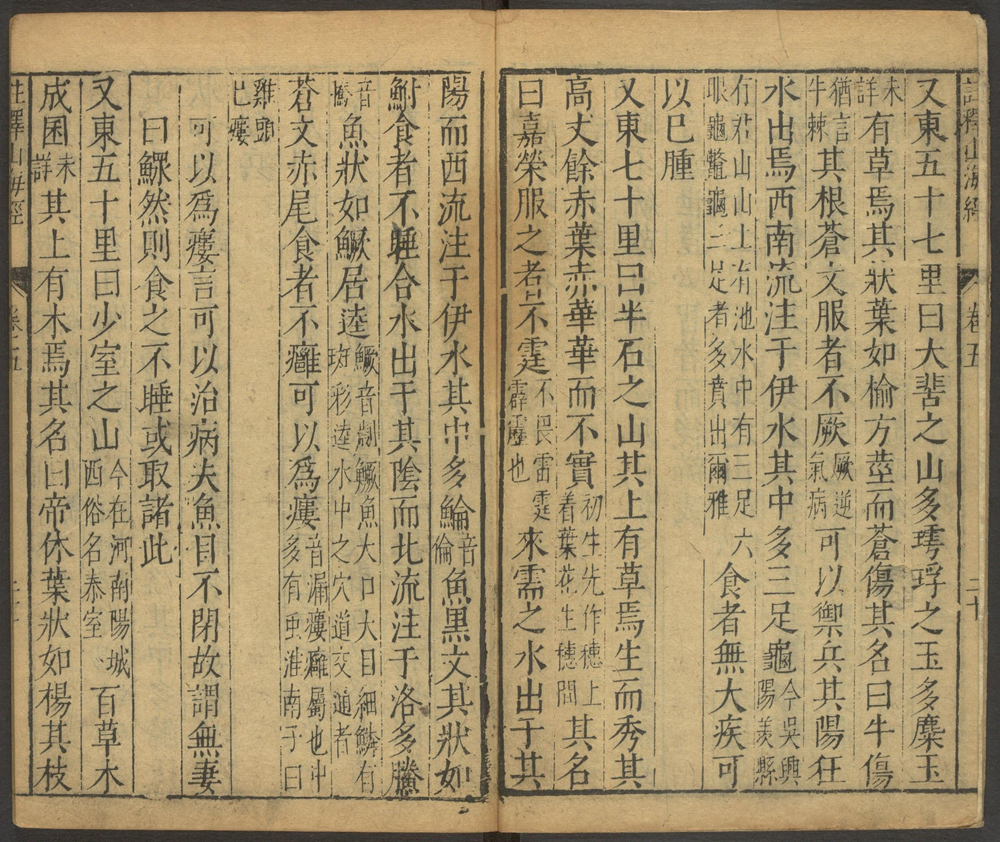 註釋山海經 卷五 二十
又東五十七里曰大𦱟之山多㻬琈之玉多麋玉
未詳有草焉其狀葉如榆方莖而蒼傷其名曰牛傷
猶言牛棘其根蒼文服者不厥厥逆氣病可以禦兵其陽狂
水出焉西南流注于伊水其中多三足龜今吳興陽羨縣
有君山山上有池水中有三足六眼龜鼈龜三足者名賁出爾雅食者無大疾可
以已腫
又東七十里曰半石之山其上有草焉生而秀其
高丈餘赤葉赤華華而不實初生先作穗上着葉花生穗間其名
曰嘉榮服之者不霆不畏雷霆霹靂也來需之水出于其
陽而西流注于伊水其中多鯩音倫魚黑文其狀如
鮒食者不睡合水出于其陰而北流注于洛多䲢
音騰魚狀如鱖居逵鱖音劌鱖魚大口大目細鱗有斑彩逵水中之穴道交通者
蒼文赤尾食者不癰可以爲瘻音漏瘻癰屬也中多有蟲淮南子曰
雞頭已瘻
可以爲瘻言可以治病夫魚目不閉故謂無妻
曰鰥然則食之不睡或取諸此
又東五十里曰少室之山今在河南陽城西俗名泰室百草木
成囷未詳其上有木焉其名曰帝休葉狀如楊其枝
註釋山海經 卷五